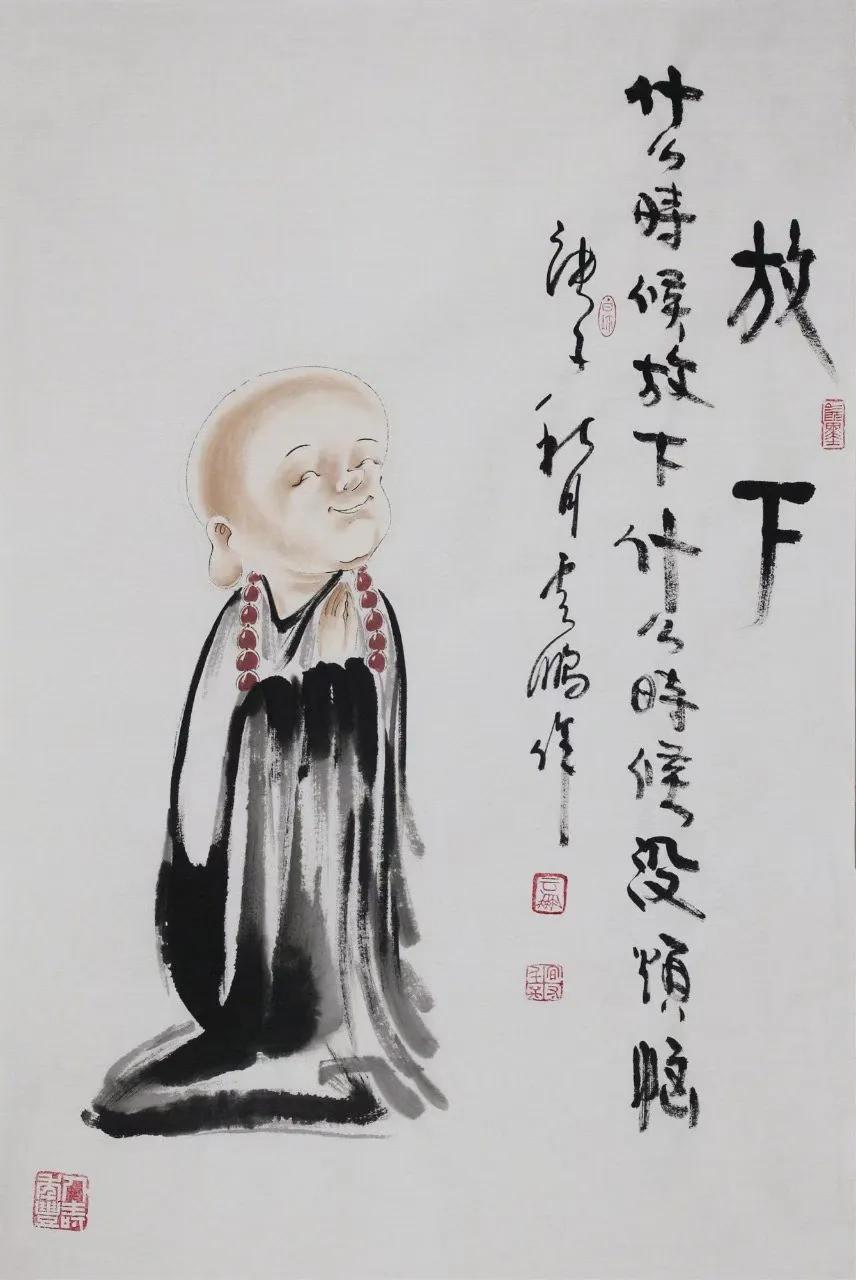 放下
什么時候放下什么時候没煩惱
子秋月云鹏作